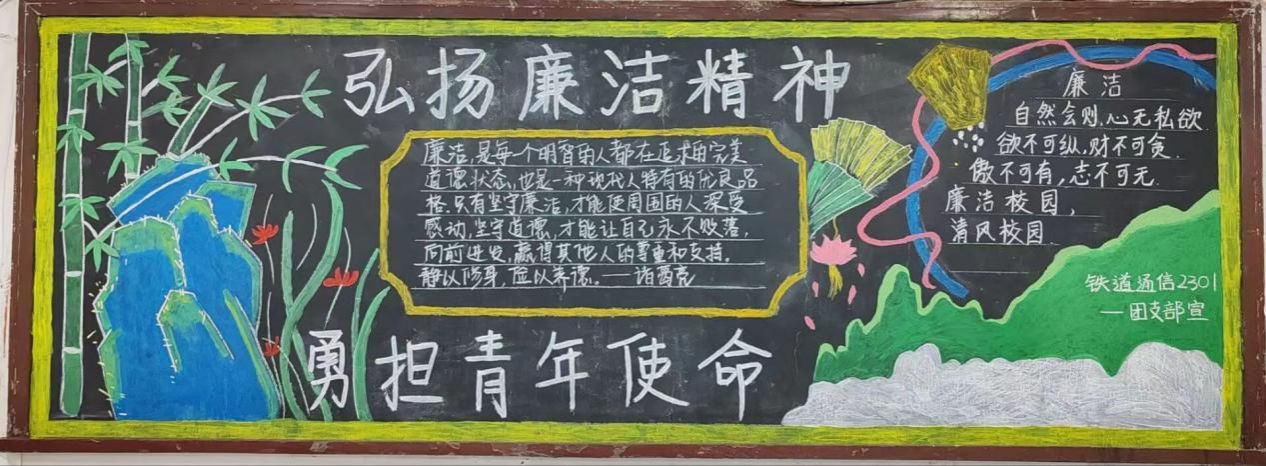 弘扬廉洁精神
廉洁,是每一个明智的人都在追求的完美
道德状态,也是一种现代人特有的优良品
格.只有坚守廉洁,才能使周围的人深受
感动,坚守道德,才能让自己永不败落,
向前进发,赢得其他人的尊重和支持.
静以修身,俭以养德.——诸葛亮
勇担青年使命
廉洁
自然会则,心无私欲.
欲不可纵,财不可贪.
傲不可有,志不可无.
廉洁校园,
清风校园.
铁道通信2301
—团支部宣